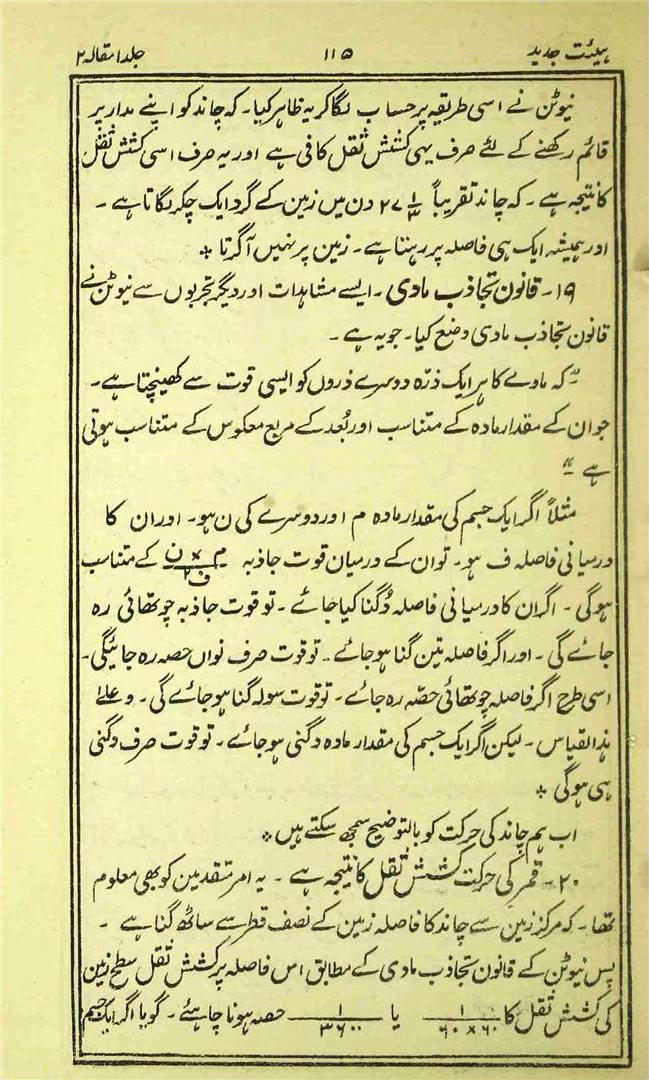 ہیئت جدید ۱۱۵ جلد ۱ مقالہ ۲
نیوٹن نے اسی طریقہ پر حساب لگا کر یہ ظاہر کیا۔ کہ چاند کو اپنے مدار پر
قائم رکھنے کے لئے صرف یہی کشش ثقل کافی ہے اور یہ صرف اسی کشش ثقل
کا نتیجہ ہے۔ کہ چاند تقریباً ۲۷ ۱/۳ دن میں زمین کے گرد ایک چکر لگاتا ہے۔
اور ہمیشہ ایک ہی فاصلہ پر رہتا ہے۔ زمین پر نہیں آگرتا *
۱۹۔ قانون تجاذب مادی۔ ایسے مشاہدات اور دیگر تجربوں سے نیوٹن نے
قانون تجاذب مادی وضع کیا۔ جو یہ ہے۔
"کہ مادے کا ہر ایک ذرّہ دوسرے ذروں کو ایسی قوت سے کھینچتا ہے۔
جو ان کے مقدار مادہ کے متناسب اور بُعد کے مربع معکوس کے متناسب ہوتی
ہے"
مثلاً اگر ایک جسم کی مقدار مادہ م اور دوسرے کی ن ہو۔ اور ان کا
درمیانی فاصلہ ف ہو۔ تو ان کے درمیان قوت جاذبہ م × ن / ف۲ کے متناسب
ہوگی۔ اگر ان کا درمیانی فاصلہ دُگنا کیا جائے۔ تو قوت جاذبہ چوتھائی رہ
جائے گی۔ اور اگر فاصلہ تین گنا ہو جائے۔ تو قوت صرف نواں حصہ رہ جائیگی۔
اسی طرح اگر فاصلہ چوتھائی حصّہ رہ جائے۔ تو قوت سولہ گنا ہو جائے گی۔ و علےٰ
ہذا القیاس۔ لیکن اگر ایک جسم کی مقدار مادہ دگنی ہو جائے۔ تو قوت صرف دگنی
ہی ہوگی *
اب ہم چاند کی حرکت کو بالتوضیح سمجھ سکتے ہیں *
۲۰۔ قمر کی حرکت کشش ثقل کا نتیجہ ہے۔ یہ امر متقدمین کو بھی معلوم
تھا۔ کہ مرکز زمین سے چاند کا فاصلہ زمین کے نصف قطر سے ساٹھ گنا ہے۔
پس نیوٹن کے قانون تجاذب مادی کے مطابق اس فاصلہ پر کشش ثقل سطح زمین
کی کشش ثقل کا ۱/۶۰×۶۰ یا ۱/۳۶۰۰ حصہ ہونا چاہئے۔ گویا اگر ایک جسم